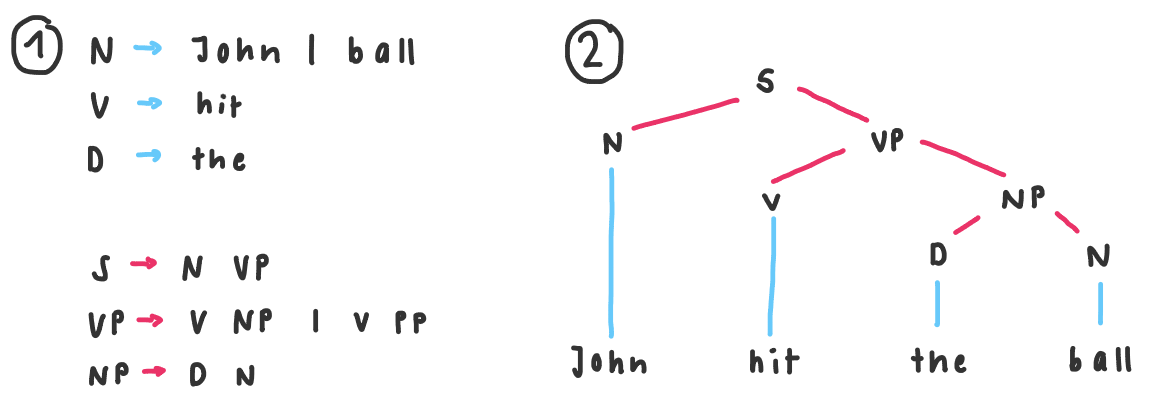 1
N → John | ball
V → hit
D → the
S → N VP
VP → V NP | V PP
NP → D N
2
S
N VP
V NP
D N
John hit the ball